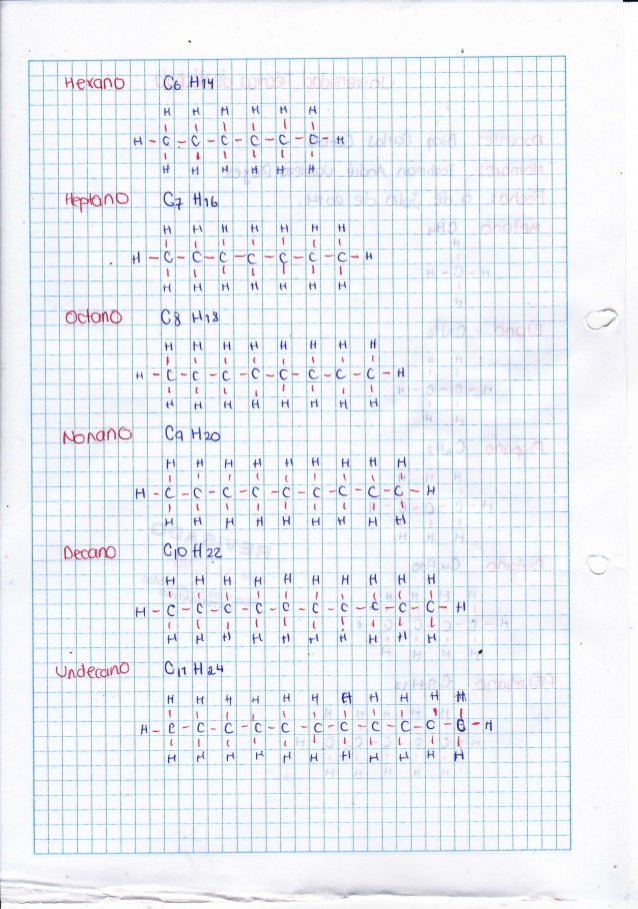 Hexano C6 H14
H H H H H H
H - C - C - C - C - C - C - H
H H H H H H
Heptano C7 H16
H H H H H H H
H - C - C - C - C - C - C - C - H
H H H H H H H
Octano C8 H18
H H H H H H H H
H - C - C - C - C - C - C - C - C - H
H H H H H H H H
Nonano C9 H20
H H H H H H H H H
H - C - C - C - C - C - C - C - C - C - H
H H H H H H H H H
Decano C10 H22
H H H H H H H H H H
H - C - C - C - C - C - C - C - C - C - C - H
H H H H H H H H H H
Undecano C11 H24
H H H H H H H H H H H
H - C - C - C - C - C - C - C - C - C - C - C - H
H H H H H H H H H H H